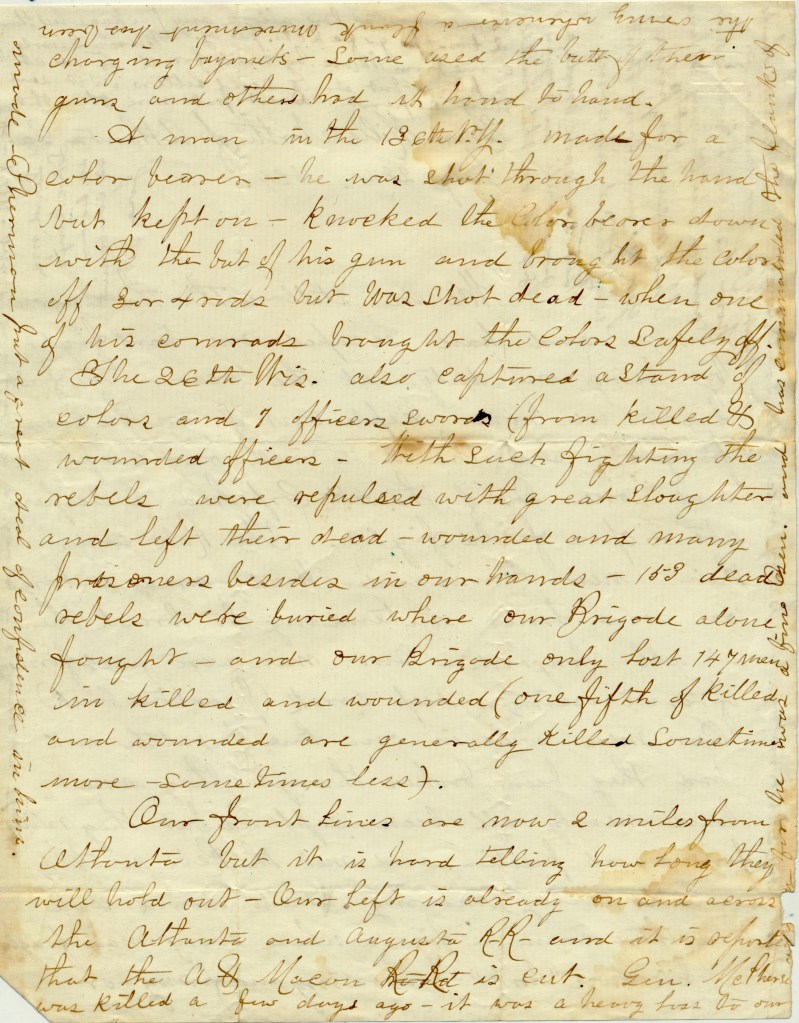 charging bayonets – Some used the butt of their
guns and others had it hand to hand.
A man in the 136th N.Y. made for a
color bearer – he was shot through the hand
but kept on – Knocked the Color bearer down
with the but of his gun and brought the color
off 3 or 4 rods but was shot dead – when one
of his comrads brought the Colors Safely off.
The 26th Wis. also captured a stand of
colors and 7 officers swords (from killed &
wounded officers – With such fighting the
rebels were repulsed with great slaughter
and left their dead – wounded and many
prisoners besides in our hands – 153 dead
rebels were buried where our Brigade alone
fought – and our Brigade only lost 147 men
in killed and wounded (one fifth of killed
and wounded are generally killed sometimes
more – sometimes less).
Our front lines are now 2 miles from
Atlanta but it is hard telling how long they
will hold out – Our left is already on and across
the Atlanta and Augusta R.R – and it is reported
that the A & Macon R.Rd is cut. Gen. McPherson
was killed a few days ago – it was a heavy loss to our
army for he was a fine Gen. and has commanded the flanks of
the army whenever a flank movement has been
made – Sherman put a great deal of confidence in him.